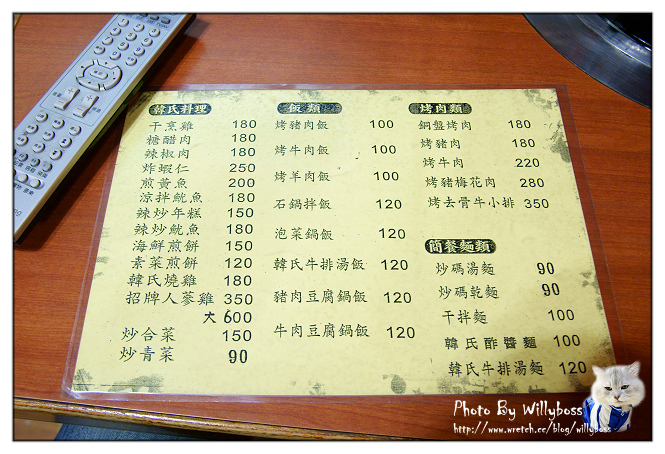 韓氏料理
干烹雞 180
糖醋肉 180
辣椒肉 180
炸蝦仁 250
煎黃魚 200
涼拌魷魚 180
辣炒年糕 150
辣炒魷魚 180
海鮮煎餅 150
素菜煎餅 120
韓氏燒雞 180
招牌人蔘雞 350
大 600
炒合菜 150
炒青菜 90
飯類
烤豬肉飯 100
烤牛肉飯 100
烤羊肉飯 100
石鍋拌飯 120
泡菜鍋飯 120
韓氏牛排湯飯 120
豬肉豆腐鍋飯 120
牛肉豆腐鍋飯 120
烤肉類
銅盤烤肉 180
烤豬肉 180
烤牛肉 220
烤豬梅花肉 280
烤去骨牛小排 350
簡餐麵類
炒碼湯麵 90
炒碼乾麵 90
干拌麵 100
韓氏酢醬麵 100
韓氏牛排湯麵 120
Photo By Willyboss
http://www.wretch.cc/blog/willyboss